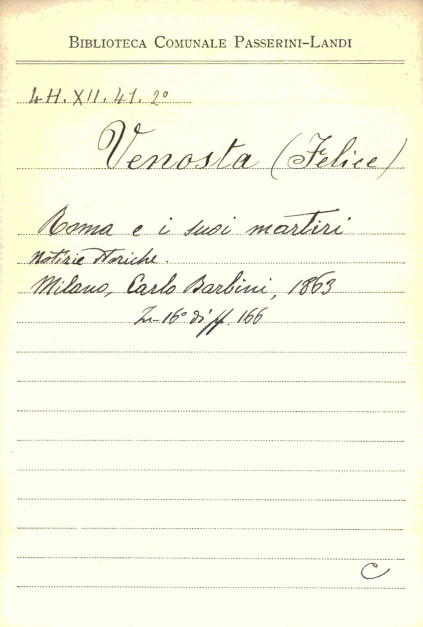 BIBLIOTECA COMUNALE PASSERINI-LANDI
4H.XII.41.2°
Venosta (Felice)
Roma e i suoi martiri
Notizie storiche.
Milano, Carlo Barbini, 1863
In-16° di pp. 166
C